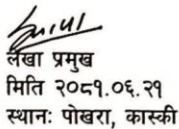 लेखा प्रमुख
मिति २०८१.०६.२१
स्थानः पोखरा, कास्की